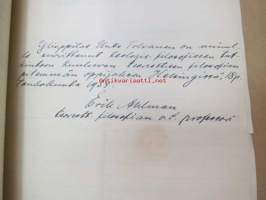 Ylioppilas Unto Tolvanen on minul-
le suorittanut teologis-filosofiseen tut-
kintoon kuuluvan teoreettisen filosofian
pitemmän oppijakson Helsingissä, 18 p.
toukokuuta 1939.
Erik Ahlman
teoreett. filosofian v.t. professori